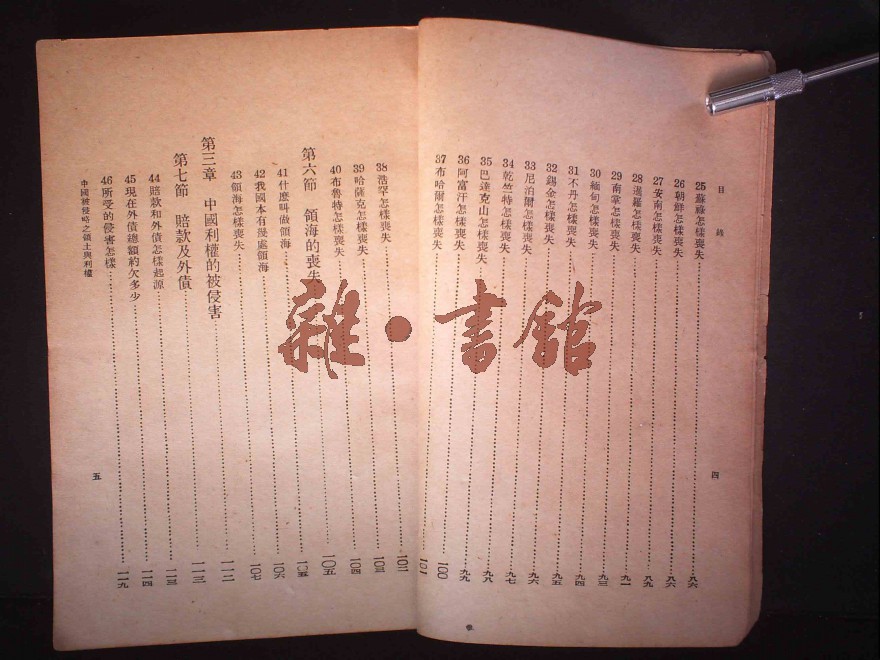 目錄
25 蘇祿怎樣喪失……八六
26 朝鮮怎樣喪失……八六
27 安南怎樣喪失……八九
28 暹羅怎樣喪失……八九
29 南掌怎樣喪失……九一
30 緬甸怎樣喪失……九三
31 不丹怎樣喪失……九四
32 錫金怎樣喪失……九五
33 尼泊爾怎樣喪失……九六
34 乾竺特怎樣喪失……九七
35 巴達克山怎樣喪失……九八
36 阿富汗怎樣喪失……九九
37 布哈爾怎樣喪失……一〇〇
四
38 浩罕怎樣喪失……一〇二
39 哈薩克怎樣喪失……一〇三
40 布魯特怎樣喪失……一〇四
第六節 領海的喪失……一〇五
41 什麽叫做領海……一〇五
42 我國本有幾處領海……一〇六
43 領海怎樣喪失……一〇七
第三章 中國利權的被侵害……一一二
第七節 賠款及外債……一一二
44 賠款和外債怎樣起源……一一三
45 現在外債總額約欠多少……一一四
46 所受的侵害怎樣……一一九
中國被侵略之領土與利權
五
雜·書館